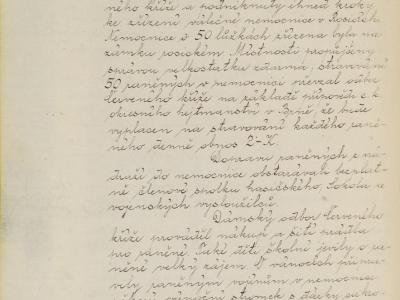 ného kříže a podniknuty ihned kroky
ke zřízení válečné nemocnice v Rosicích.
Nemocnice o 50 lůžkách zřízena byla na
zámku rosickém. Místnosti propůjčeny
správou velkostatku zdarma, stravování
50 raněných v nemocnici převzal odbor
červeného kříže na základě přípovědi c. k.
okresního hejtmanství v Brně, že bude
vyplacen na stravování každého raně-
ného denně obnos 2-K.
Dopravu raněných z ná-
draží do nemocnice obstarávali bezplat-
ně členové spolku hasičského, Sokola a
vojenských vysloužilců.
Dámský odbor červeného
kříže prováděl nákup a šití prádla
pro raněné. Také dítky školní jevily o ra-
něné velký zájem. O vánocích připra-
vily raněným vojínům v nemocnici
vánoční stromek s dárky